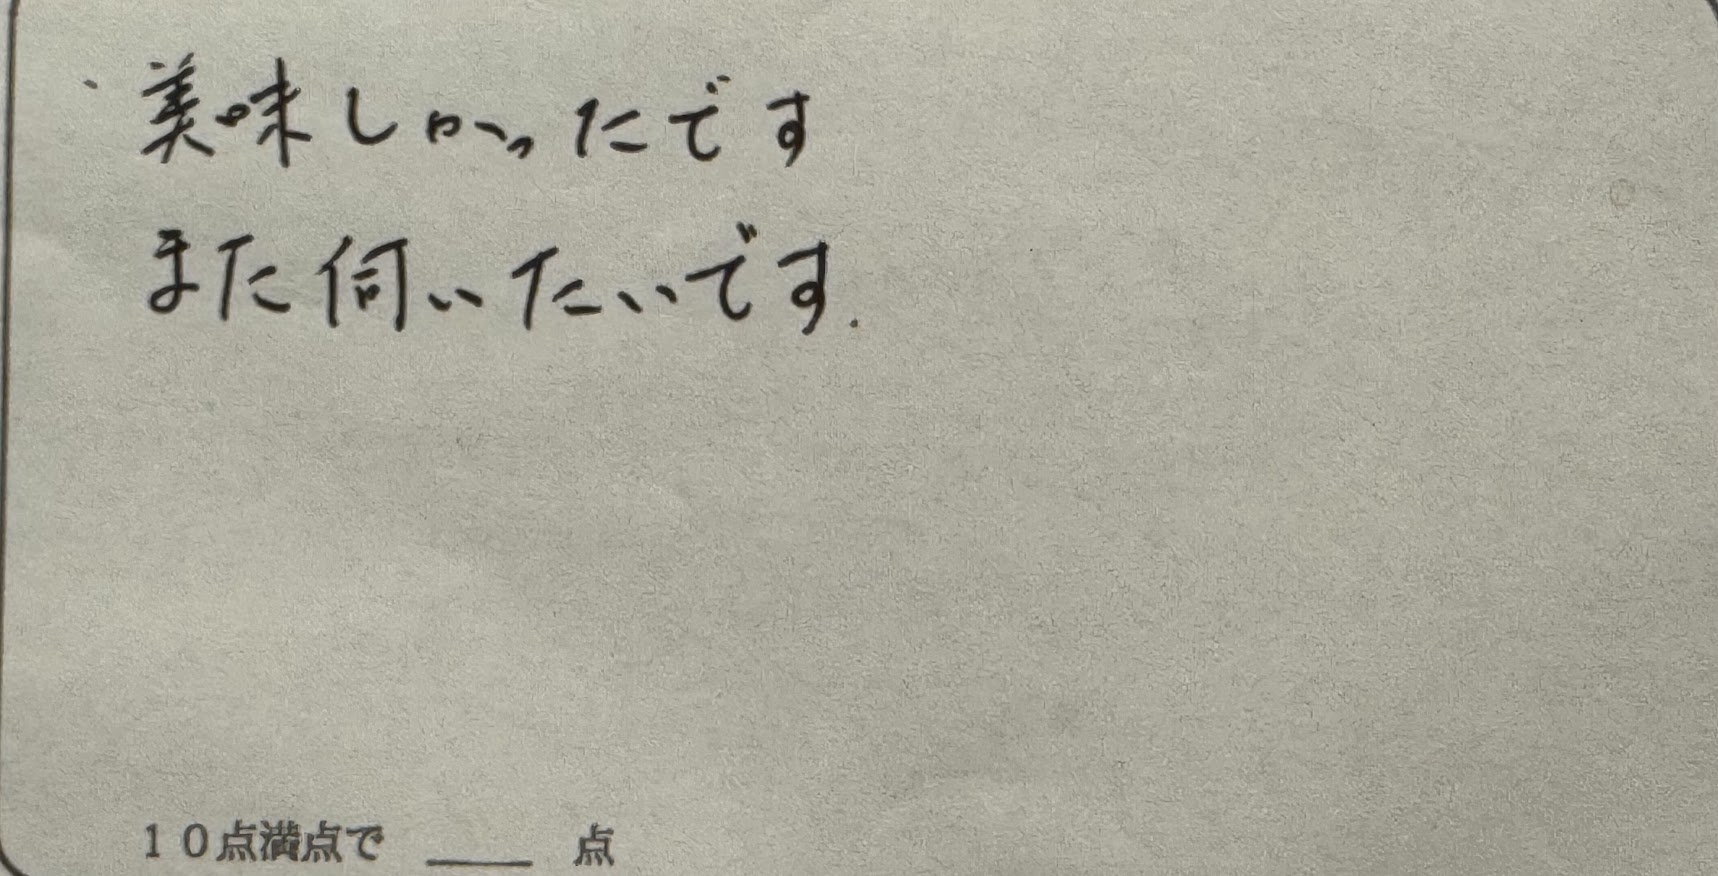 美味しかったです
また伺いたいです.
10点満点で ___ 点